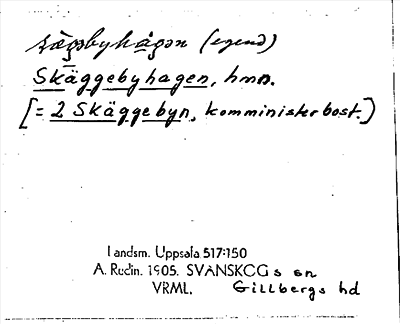 (egend)
Skäggebyhagen, hmn.
[= 2 Skäggebyn, komministerbost.]
Landsm. Uppsala 517:150
A. Rudin. 1905. SVANSKOGs sn
VRML. Gillbergs hd